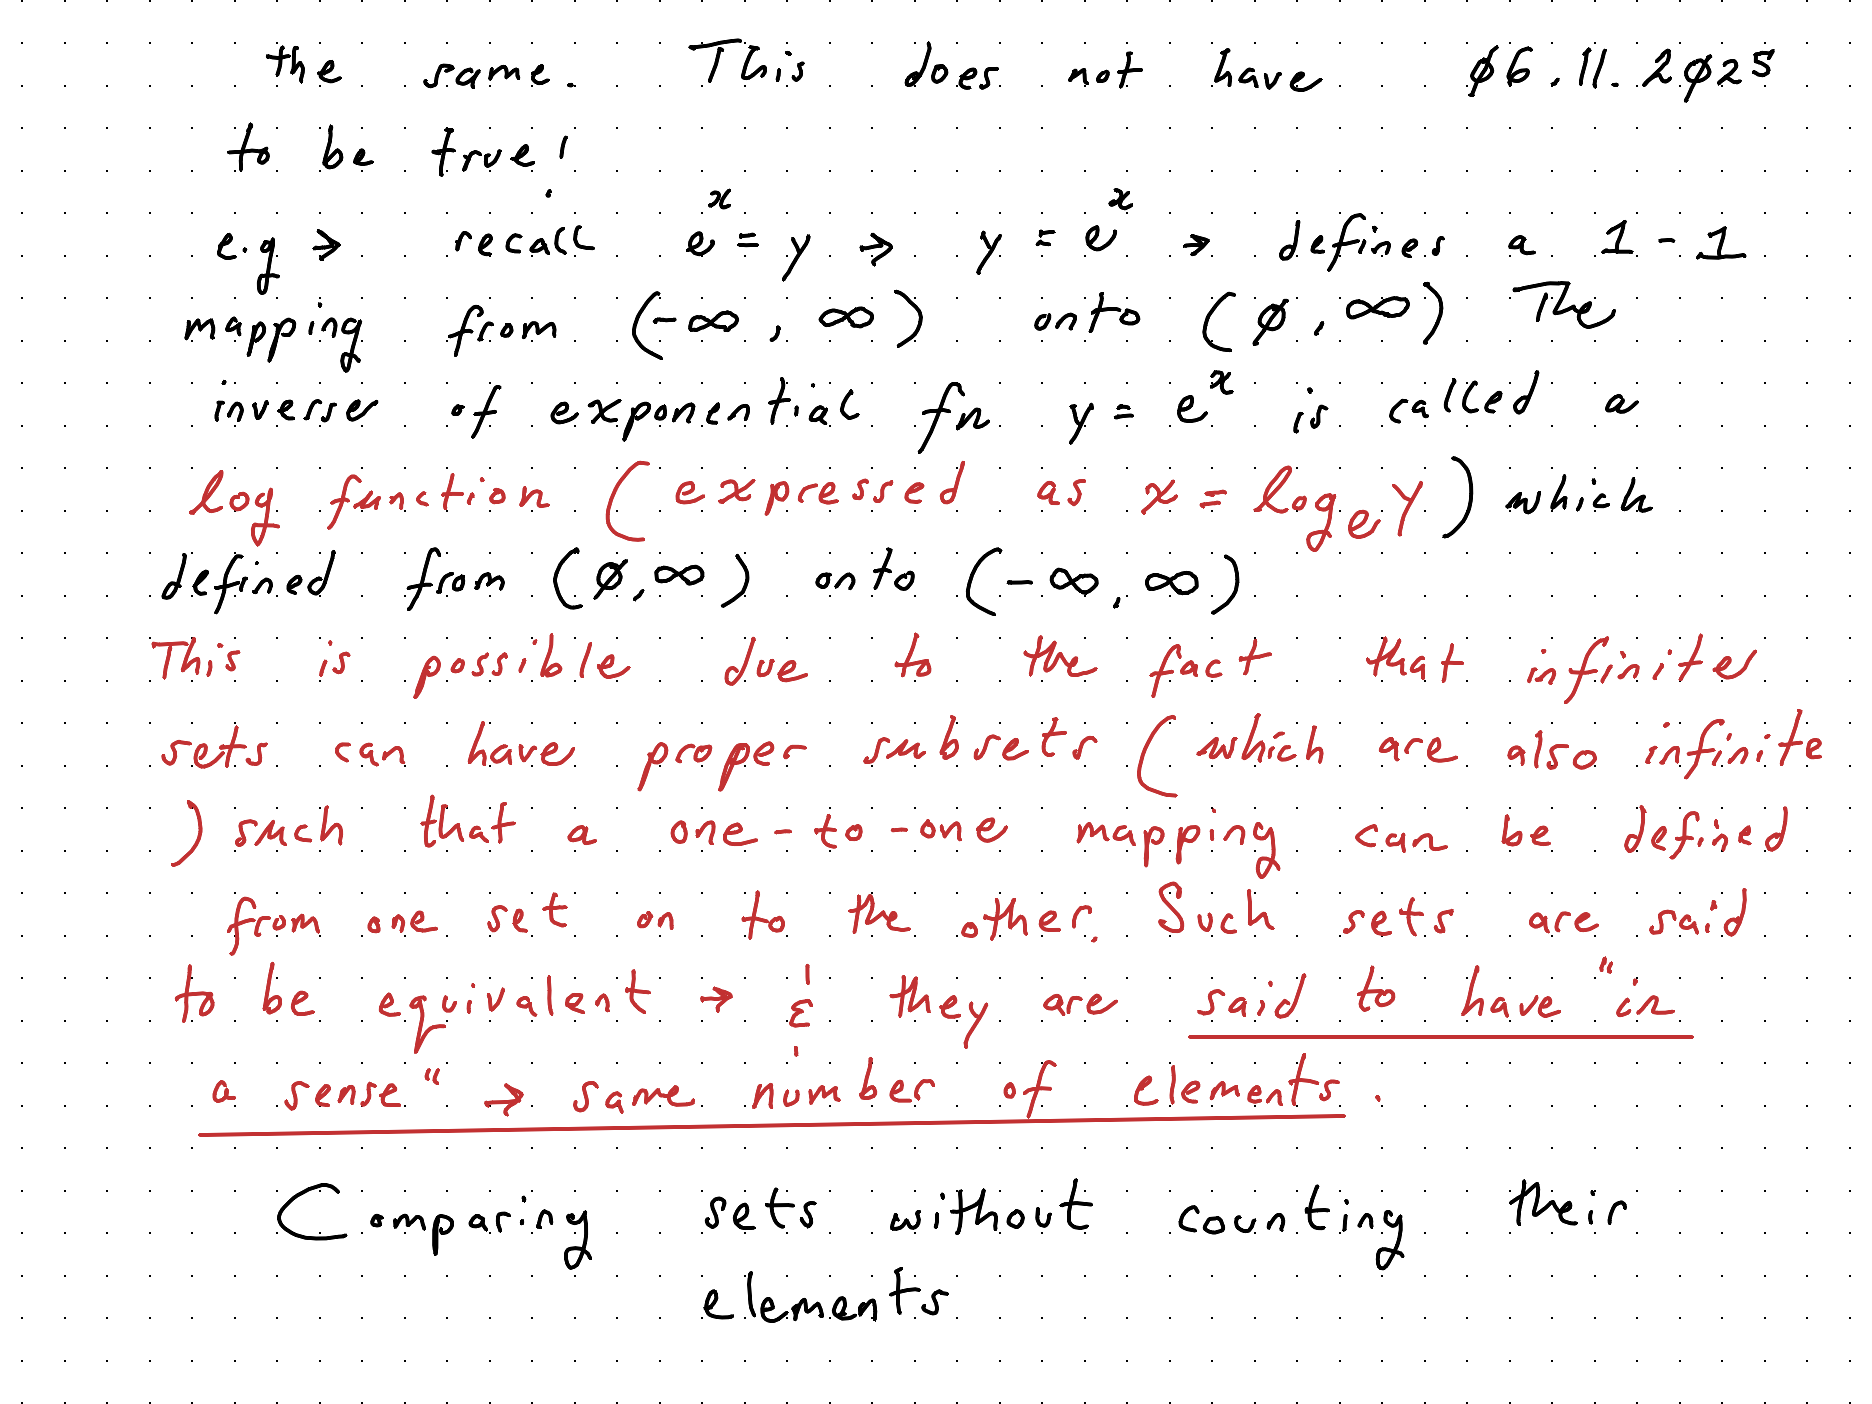 the same. This does not have ø6.11.2ø25
to be true!
e.g → recall e^x = y → y = e^x → defines a 1-1
mapping from (-∞, ∞) onto (ø, ∞) The
inverse of exponential fn y = e^x is called a
log function (expressed as x = log_e y) which
defined from (ø,∞) onto (-∞, ∞)
This is possible due to the fact that infinite
sets can have proper subsets (which are also infinite
) such that a one-to-one mapping can be defined
from one set on to the other. Such sets are said
to be equivalent → & they are said to have "in
a sense" → same number of elements.
Comparing sets without counting their
elements